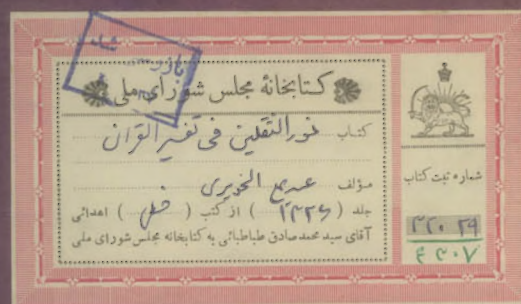 کتابخانهٔ مجلس شورای ملی
کتاب نورالثقلین فی تفسیر القرآن
مؤلف الحویزی
جلد (۱۴۲۶) از کتب (خطی) اهدائی
آقای سید محمد صادق طباطبائی به کتابخانه مجلس شورای ملی
شماره ثبت کتاب